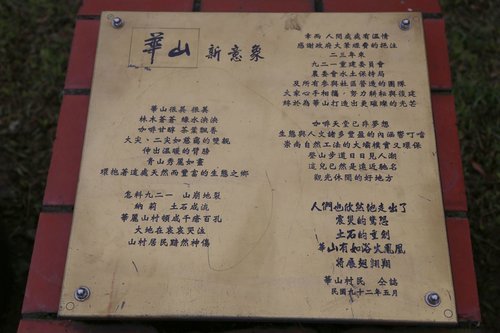 華山 新意象
華山張英 張英
林木蒼蒼 綠水泱泱
咖啡甘醇 茶葉飄香
大尖、二尖如慈藹的雙親
伸出溫暖的臂膀
青山秀麗如畫
環抱著這處天然而豐富的生態之鄉
怎料九二一 山崩地裂
納莉 土石成流
華麗山村頓成千瘡百孔
大地在哀哀哭泣
山村居民黯然神傷
幸而 人間處處有溫情
感謝政府大筆經費的挹注
二三年來
九二一重建委員會
農委會水土保持局
及所有參與社區營造的團隊
大家心手相攜，努力耕耘與復建
終於為華山打造出更璀璨的光芒
咖啡天堂已非夢想
生態與人文諸多豐盈的內涵響叮噹
崇尚自然工法的大壩樸實又環保
登山步道日日見人潮
這兒已然是遠近馳名
觀光休閒的好地方
人們也欣然地走出了
震災的驚怨
土石的重創
華山有如浴火鳳凰
將展翅翱翔
華山村民 仝誌
民國九十二年五月